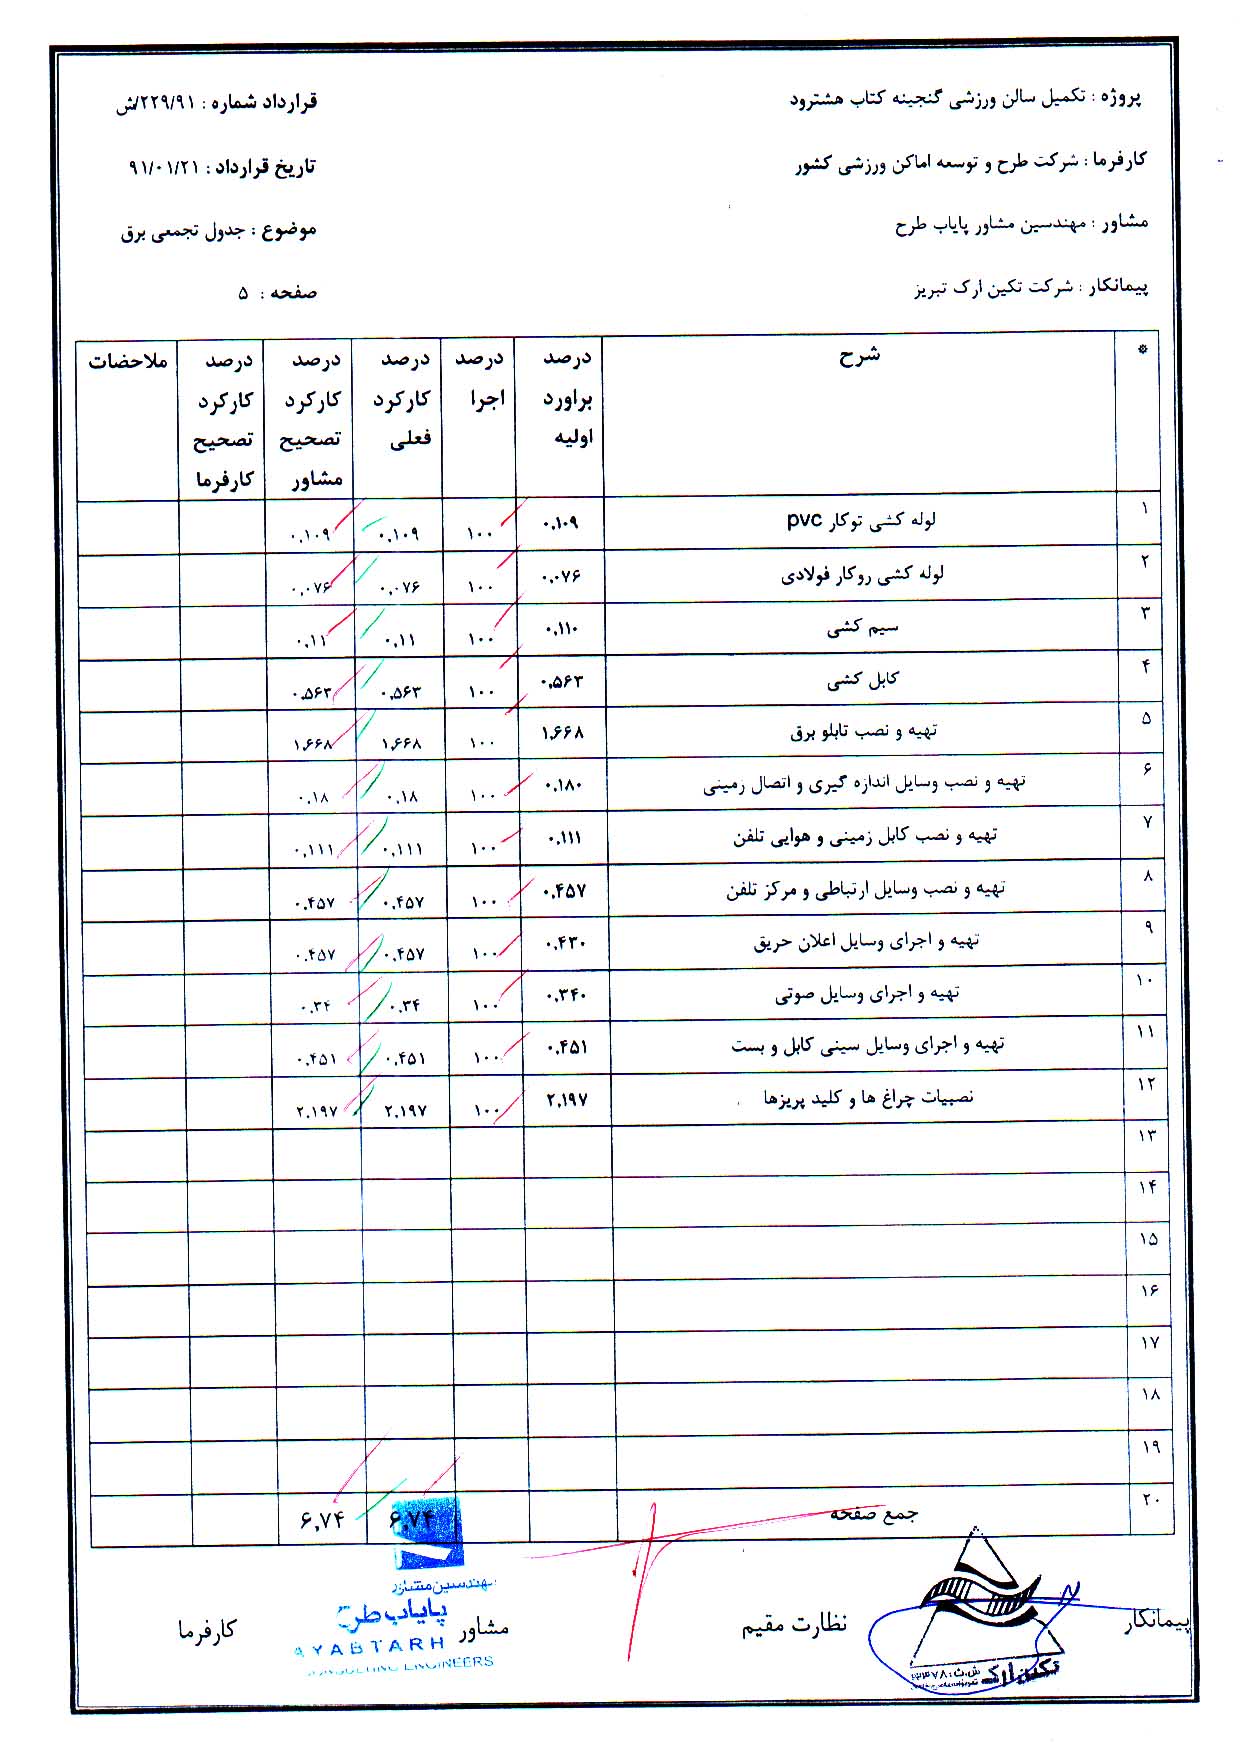 پروژه : تکمیل سالن ورزشی گنجینه کتاب هشترود
قرارداد شماره : ۲۲۹/۹۱/ش
کارفرما : شرکت طرح و توسعه اماکن ورزشی کشور
تاریخ قرارداد : ۹۱/۰۱/۲۱
مشاور : مهندسین مشاور پایاب طرح
موضوع : جدول تجمعی برق
پیمانکار : شرکت تکین ارک تبریز
صفحه : ۵
* شرح درصد براورد اولیه درصد اجرا درصد کارکرد فعلی درصد کارکرد تصحیح مشاور درصد کارکرد تصحیح کارفرما ملاحضات
۱ لوله کشی توکار pvc ۰.۱۰۹ ۱۰۰ ۰.۱۰۹ ۰.۱۰۹
۲ لوله کشی روکار فولادی ۰.۰۷۶ ۱۰۰ ۰.۰۷۶ ۰.۰۷۶
۳ سیم کشی ۰.۱۱۰ ۱۰۰ ۰.۱۱ ۰.۱۱
۴ کابل کشی ۰.۵۶۳ ۱۰۰ ۰.۵۶۳ ۰.۵۶۳
۵ تهیه و نصب تابلو برق ۱.۶۶۸ ۱۰۰ ۱.۶۶۸ ۱.۶۶۸
۶ تهیه و نصب وسایل اندازه گیری و اتصال زمینی ۰.۱۸۰ ۱۰۰ ۰.۱۸ ۰.۱۸
۷ تهیه و نصب کابل زمینی و هوایی تلفن ۰.۱۱۱ ۱۰۰ ۰.۱۱۱ ۰.۱۱۱
۸ تهیه و نصب وسایل ارتباطی و مرکز تلفن ۰.۴۵۷ ۱۰۰ ۰.۴۵۷ ۰.۴۵۷
۹ تهیه و اجرای وسایل اعلان حریق ۰.۴۳۰ ۱۰۰ ۰.۴۵۷ ۰.۴۵۷
۱۰ تهیه و اجرای وسایل صوتی ۰.۳۴۰ ۱۰۰ ۰.۳۴ ۰.۳۴
۱۱ تهیه و اجرای وسایل سینی کابل و بست ۰.۴۵۱ ۱۰۰ ۰.۴۵۱ ۰.۴۵۱
۱۲ نصبیات چراغ ها و کلید پریزها ۲.۱۹۷ ۱۰۰ ۲.۱۹۷ ۲.۱۹۷
۱۳
۱۴
۱۵
۱۶
۱۷
۱۸
۱۹
۲۰ جمع صفحه ۶,۷۴ ۶,۷۴
پیمانکار نظارت مقیم مشاور کارفرما
مهندسین مشاور
پایاب طرح
AYABTARH
ENGINEERS
تکین ارک